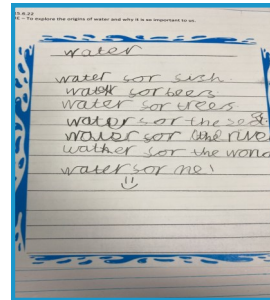 15.6.22
TE - To explore the origins of water and why it is so important to us.
water
water for fish.
water for bees
water for trees.
water for the sea
water for the rive
wather for the world
water for me!